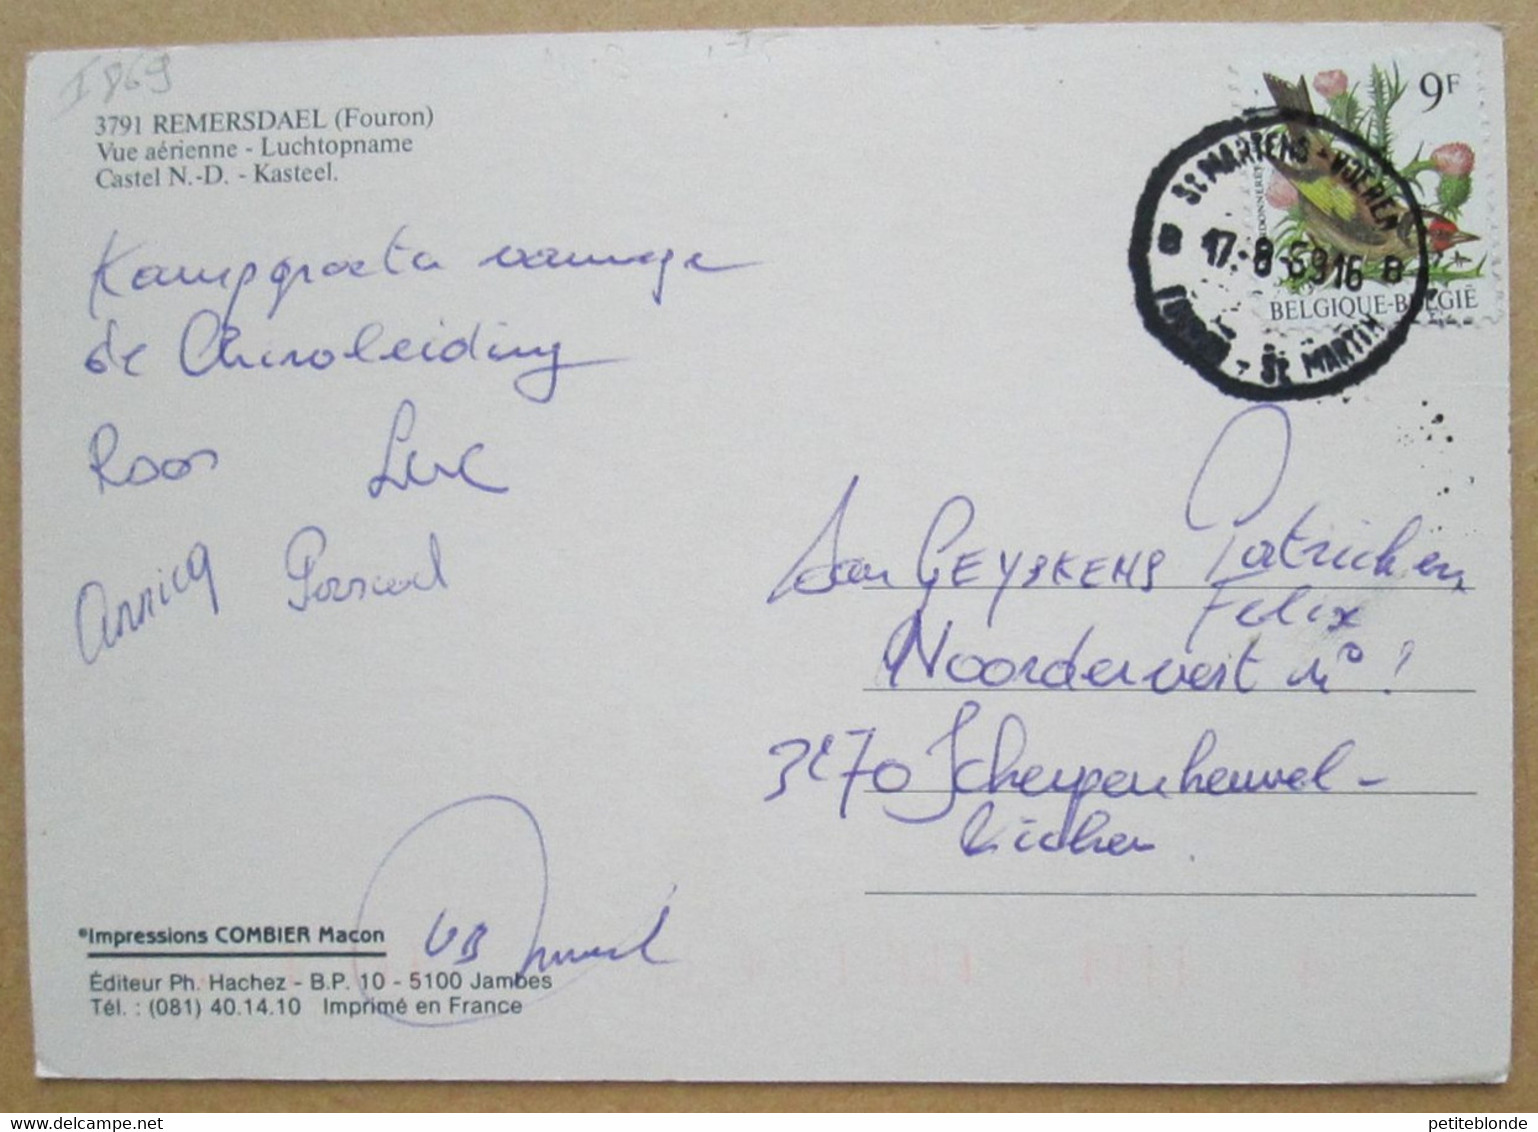 I869
3791 REMERSDAEL (Fouron)
Vue aérienne - Luchtopname
Castel N.-D. - Kasteel.
9F
BELGIQUE-BELGIË
ST MARTENS-VOEREN
B 17-8-89 16 B
FOURON - ST MARTIN
Kampgroeten vanwege
de Chiroleiding
Roos Luc
Annicq Pascal
Aan GEYSKENS Patrick en
Felix
Noordervest n° 1
3270 Scherpenheuvel-
Zichem.
°Impressions COMBIER Macon
Éditeur Ph. Hachez - B.P. 10 - 5100 Jambes
Tél. : (081) 40.14.10 Imprimé en France
petiteblonde